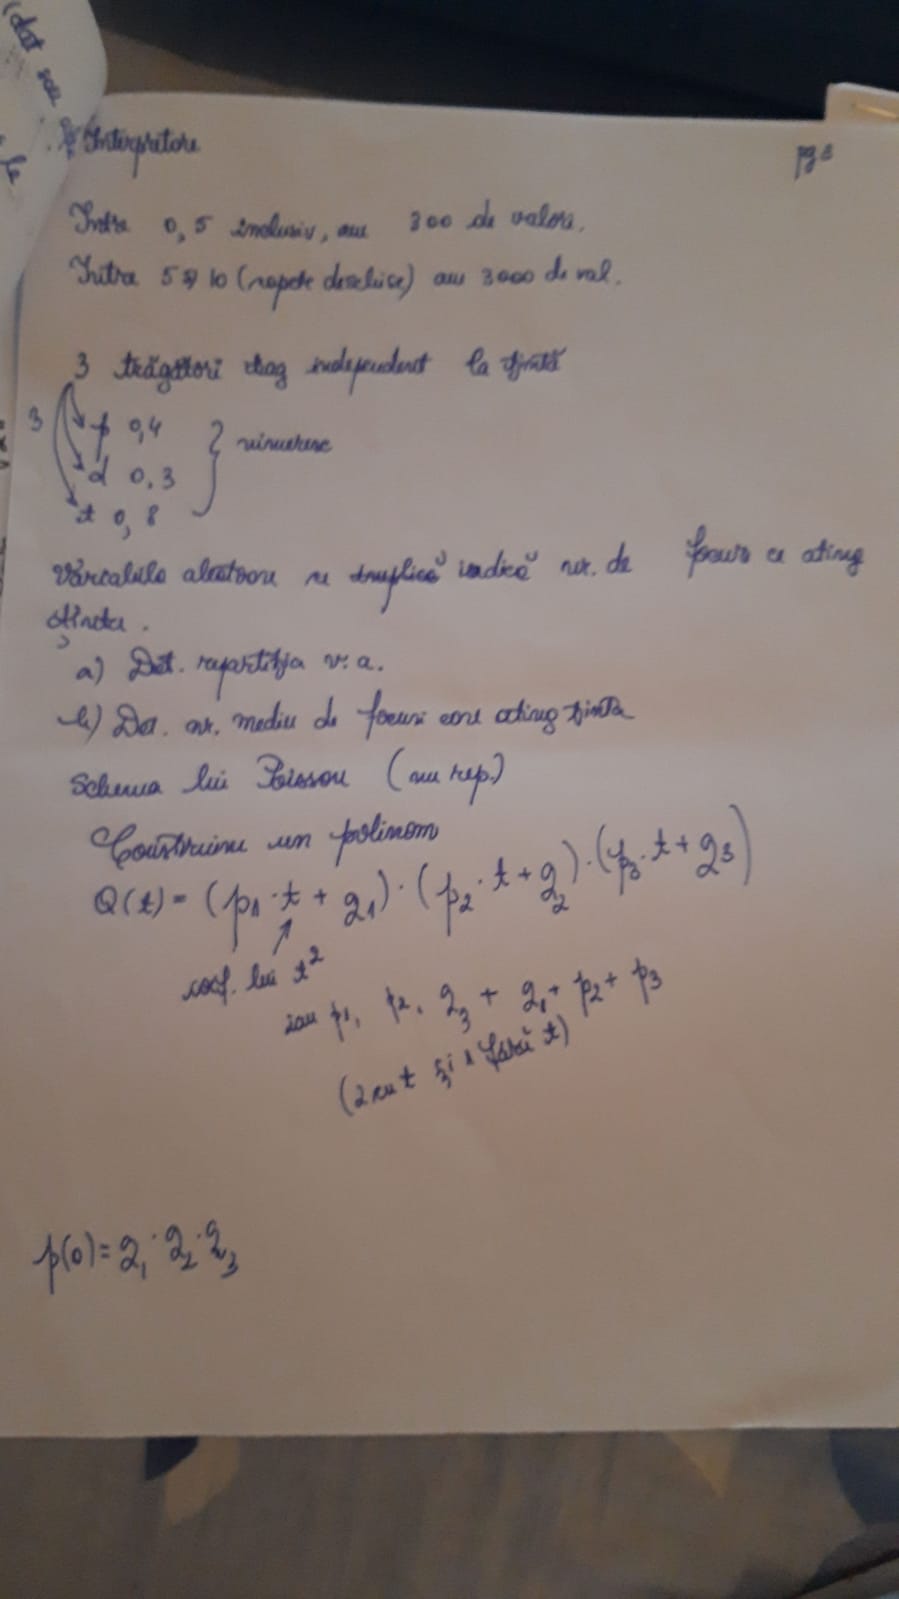 (dat
le
Interpretare
pg
Între 0, 5 inclusiv, am 300 de valori.
Între 5 și 10 (capete deschise) am 3000 de val.
3 trăgători trag independent la țintă
3
p 0,4
d 0,3
t 0,8
nimeresc
Variabila aleatoare indică nr. de focuri ce ating
ținta.
a) Det. repartiția v.a.
b) Det. nr. mediu de focuri care ating ținta
Schema lui Poisson (nu rep.)
Construim un polinom
Q(t) = (p₁ · t + q₁) · (p₂ · t + q₂) · (p₃ · t + q₃)
coef. lui t²
iau p₁, p₂, q₃ + q₁ + p₂ + p₃
(2 cu t și 1 fără t)
p(0) = q₁ · q₂ · q₃